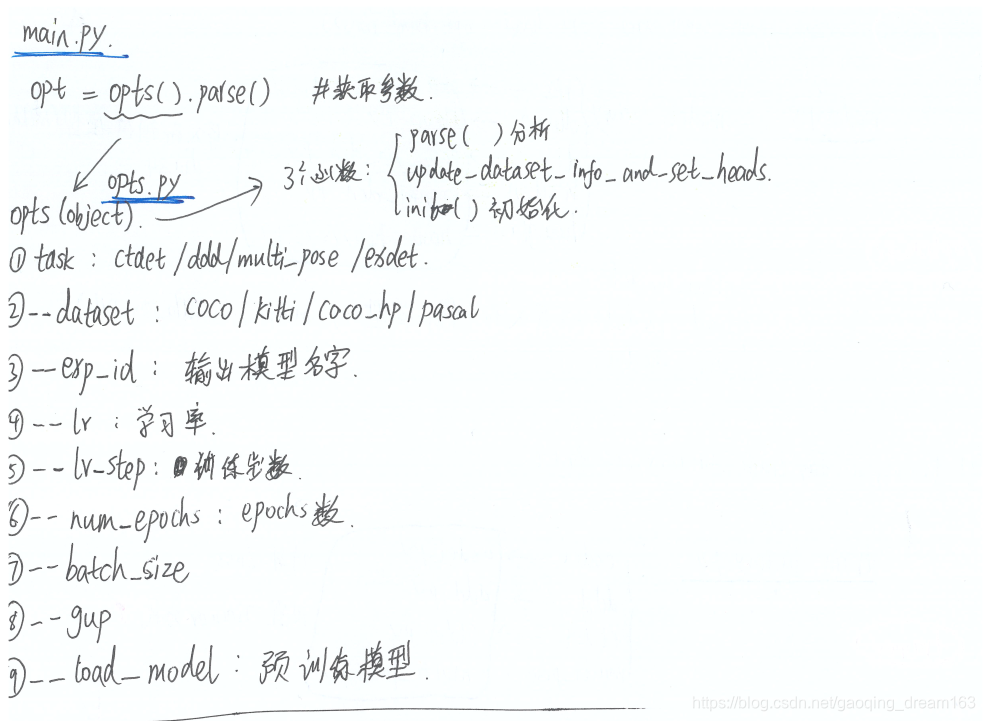 main.py.
opt = opts().parse() #获取参数.
parse( )分析
3个函数: update_dataset_info_and_set_heads.
init( ) 初始化.
opts.py
opts(object).
① task : ctdet /ddd/multi_pose /exdet.
② --dataset : coco/kitti/coco_hp/pascal
③ --exp_id : 输出模型名字.
④ --lr : 学习率.
⑤ --lr_step: 训练步数.
⑥ -- num_epochs : epochs数.
⑦ --batch_size
⑧ --gup
⑨ --load_model : 预训练模型.
https://blog.csdn.net/gaoqing_dream163